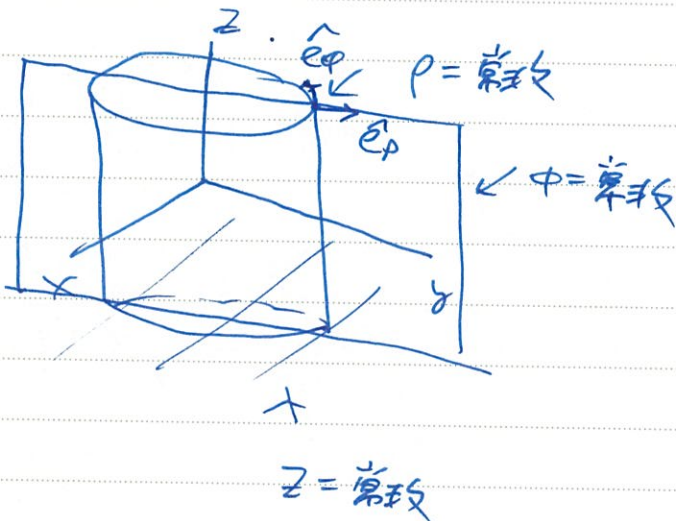 z
ê_φ
ρ = 常数
ê_ρ
φ = 常数
x
y
z = 常数